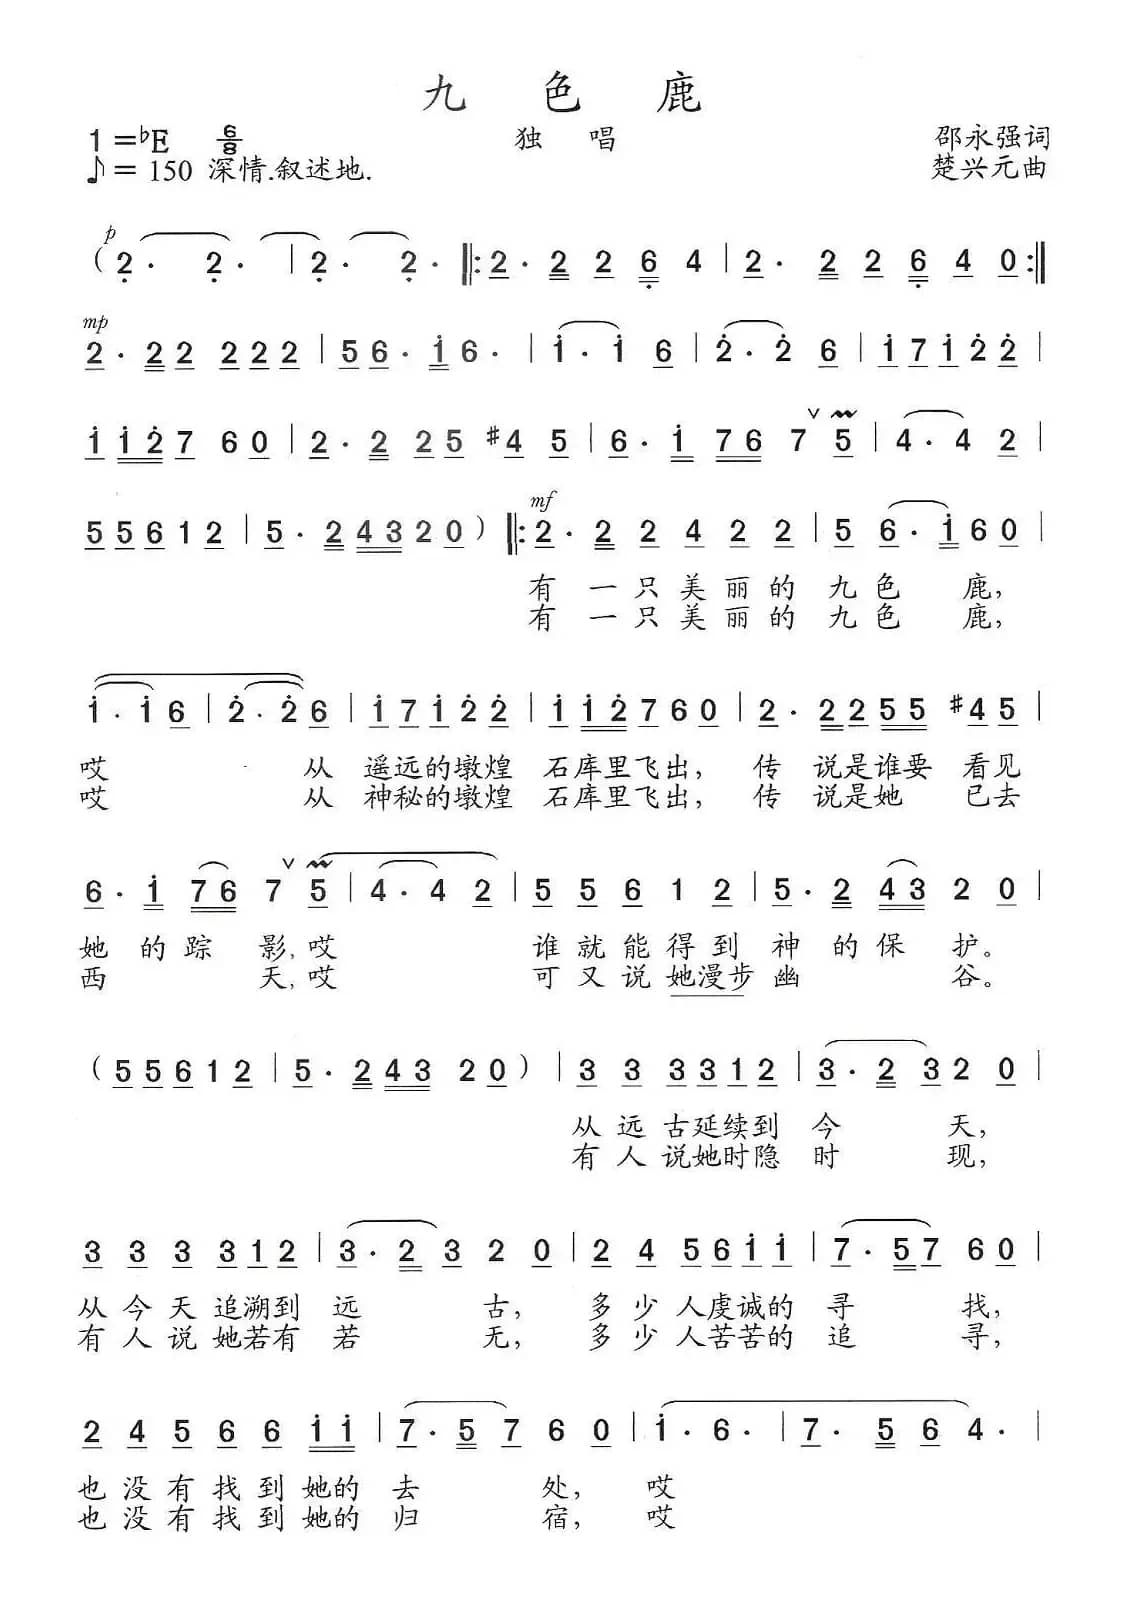 九 色 鹿
1=♭E 6/8 独 唱 邵永强词
♪=150 深情.叙述地. 楚兴元曲
p
( 2· 2· | 2· 2· ‖: 2· 2 2 6 4 | 2· 2 2 6 4 0 :‖
mp
2· 2 2 2 2 2 | 5 6· i 6· | i· i 6 | 2· 2 6 | i 7 i 2 2 |
i i 2 7 6 0 | 2· 2 2 5 #4 5 | 6· i 7 6 7 ∨ 5 | 4· 4 2 |
mf
5 5 6 1 2 | 5· 2 4 3 2 0 ) ‖: 2· 2 2 4 2 2 | 5 6· i 6 0 |
有 一 只 美 丽 的 九 色 鹿，
有 一 只 美 丽 的 九 色 鹿，
i· i 6 | 2· 2 6 | i 7 i 2 2 | i i 2 7 6 0 | 2· 2 2 5 5 #4 5 |
哎 从 遥远的墩煌 石库里飞出， 传 说是谁要 看见
哎 从 神秘的墩煌 石库里飞出， 传 说是她 已去
6· i 7 6 7 ∨ 5 | 4· 4 2 | 5 5 6 1 2 | 5· 2 4 3 2 0 |
她 的 踪 影，哎 谁 就 能 得 到 神 的 保 护。
西 天，哎 可 又 说 她漫步 幽 谷。
( 5 5 6 1 2 | 5· 2 4 3 2 0 ) | 3 3 3 3 1 2 | 3· 2 3 2 0 |
从 远 古延续到 今 天，
有 人 说她时隐 时 现，
3 3 3 3 1 2 | 3· 2 3 2 0 | 2 4 5 6 i i | 7· 5 7 6 0 |
从 今 天 追溯到 远 古， 多 少 人虔诚的 寻 找，
有 人 说 她若有 若 无， 多 少 人苦苦的 追 寻，
2 4 5 6 6 i i | 7· 5 7 6 0 | i· 6· | 7· 5 6 4· |
也 没 有 找 到 她的 去 处， 哎
也 没 有 找 到 她的 归 宿， 哎